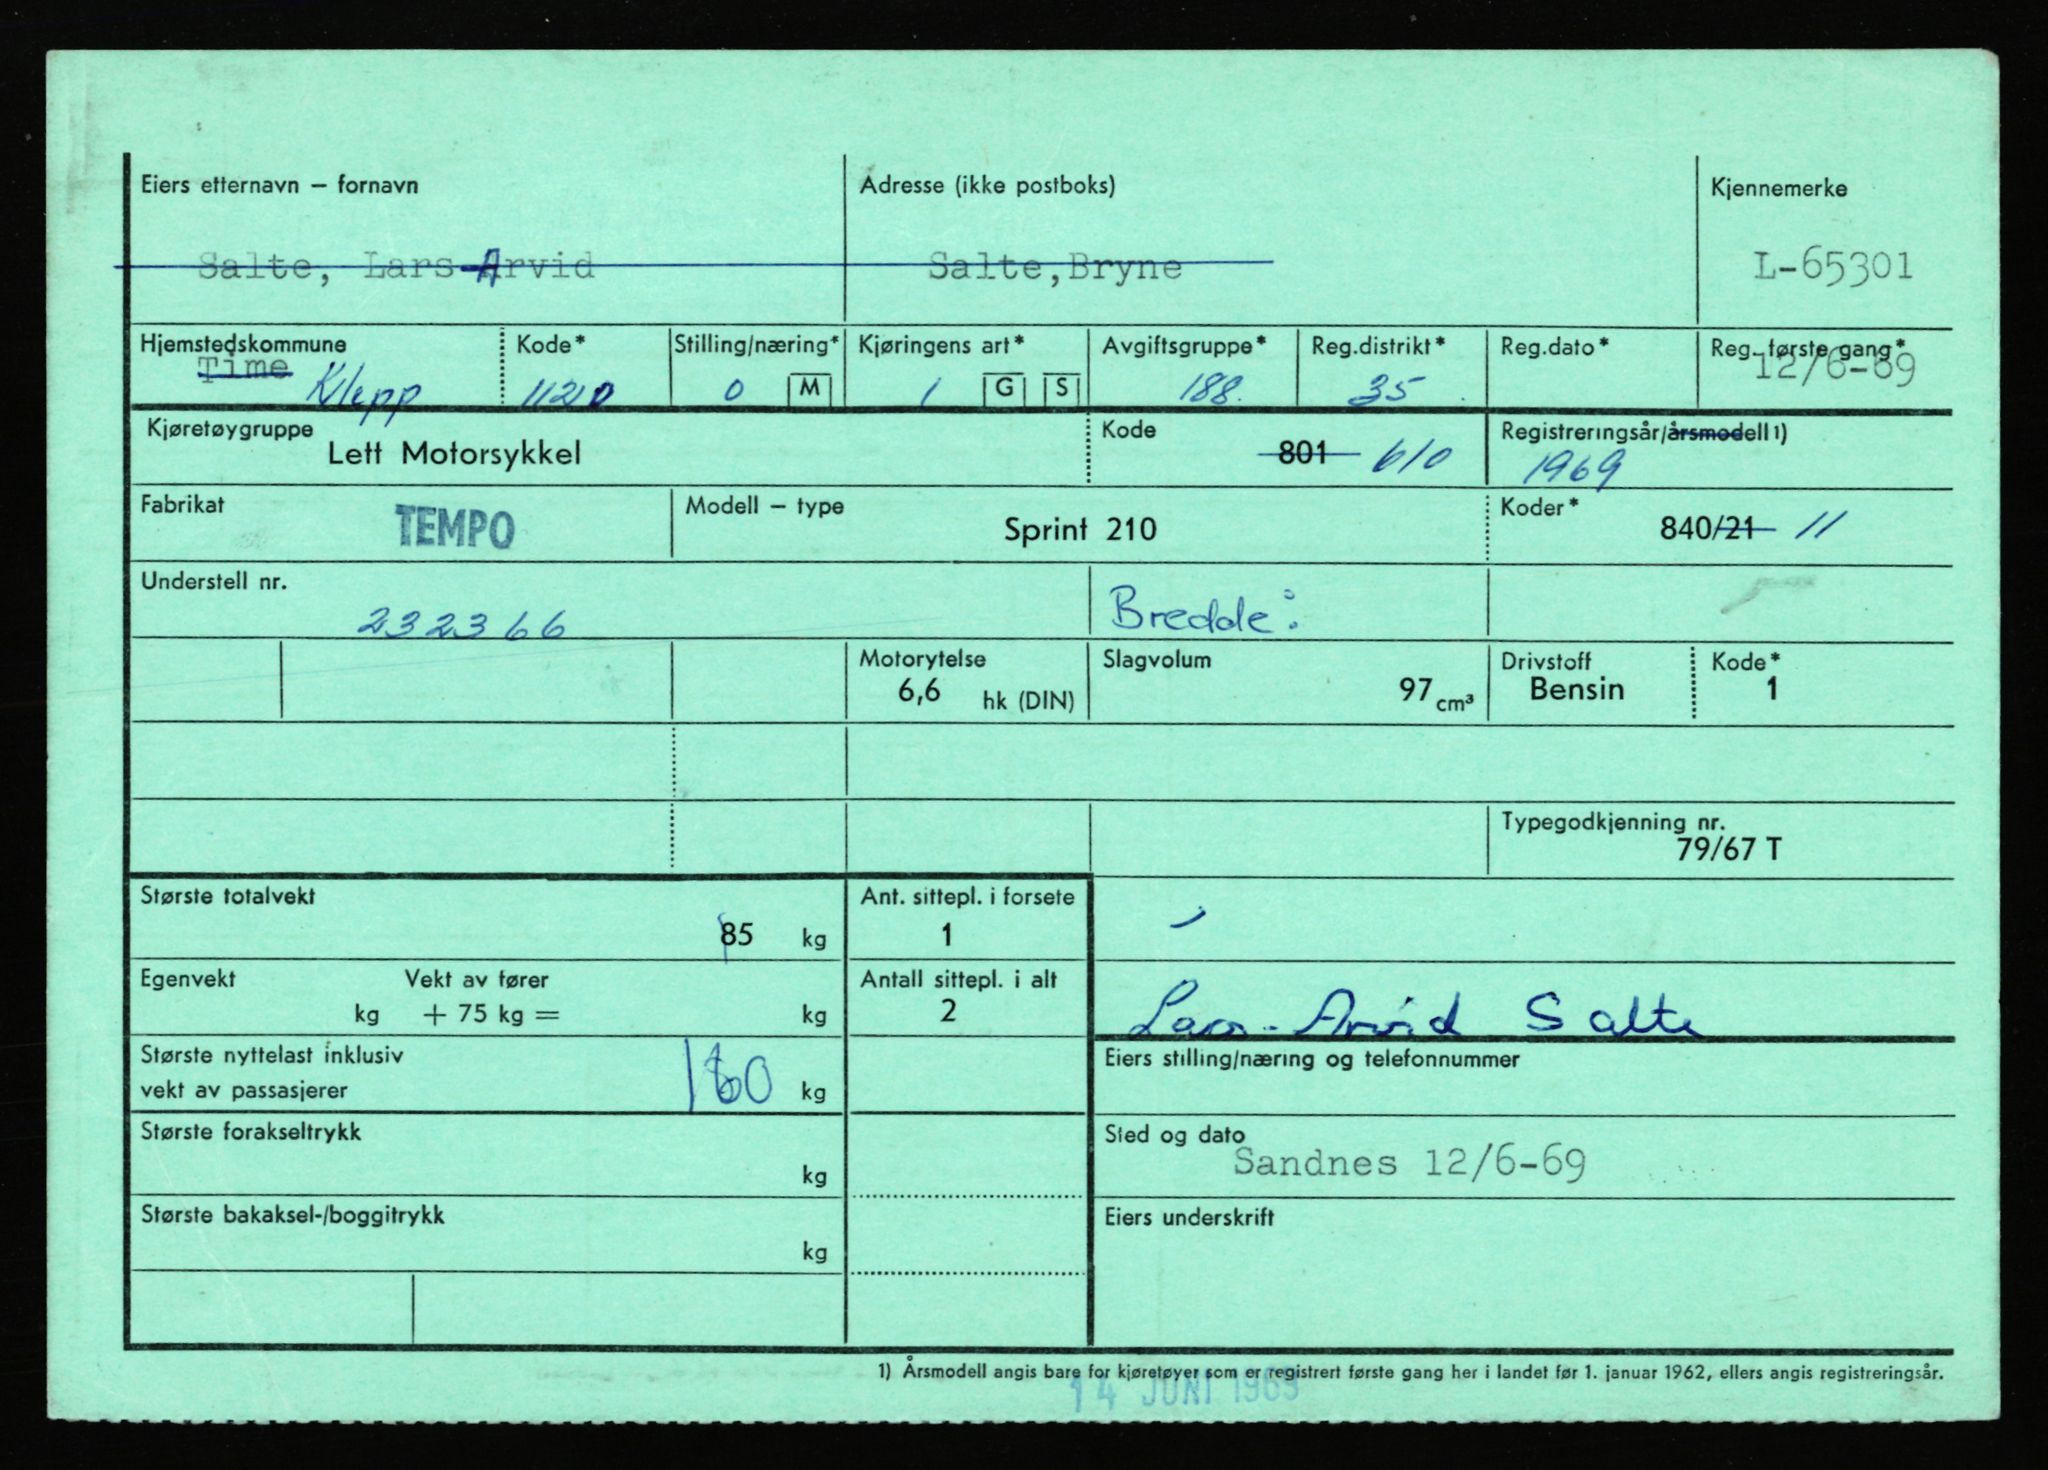 Eiers etternavn – fornavn Adresse (ikke postboks) Kjennemerke
Salte, Lars Arvid Salte, Bryne L-65301
Hjemstedskommune Kode* Stilling/næring* Kjøringens art* Avgiftsgruppe* Reg.distrikt* Reg.dato* Reg. første gang*
Time Klepp 1120 0 M 1 G S 188 35 12/6-69
Kjøretøygruppe Lett Motorsykkel Kode 801 610 Registreringsår/årsmodell 1)
1969
Fabrikat TEMPO Modell – type Sprint 210 Koder* 840/21 11
Understell nr. 232366 Bredde:
Motorytelse 6,6 hk (DIN) Slagvolum 97 cm³ Drivstoff Bensin Kode* 1
Typegodkjenning nr.
79/67 T
Største totalvekt 85 kg Ant. sittepl. i forsete 1
Egenvekt kg Vekt av fører + 75 kg = kg Antall sittepl. i alt 2
Lars Arvid Salte
Største nyttelast inklusiv
vekt av passasjerer kg
Eiers stilling/næring og telefonnummer
Største forakseltrykk kg
Sted og dato Sandnes 12/6-69
Største bakaksel-/boggitrykk kg
Eiers underskrift
1) Årsmodell angis bare for kjøretøyer som er registrert første gang her i landet før 1. januar 1962, ellers angis registreringsår.
14 JUNI 1969